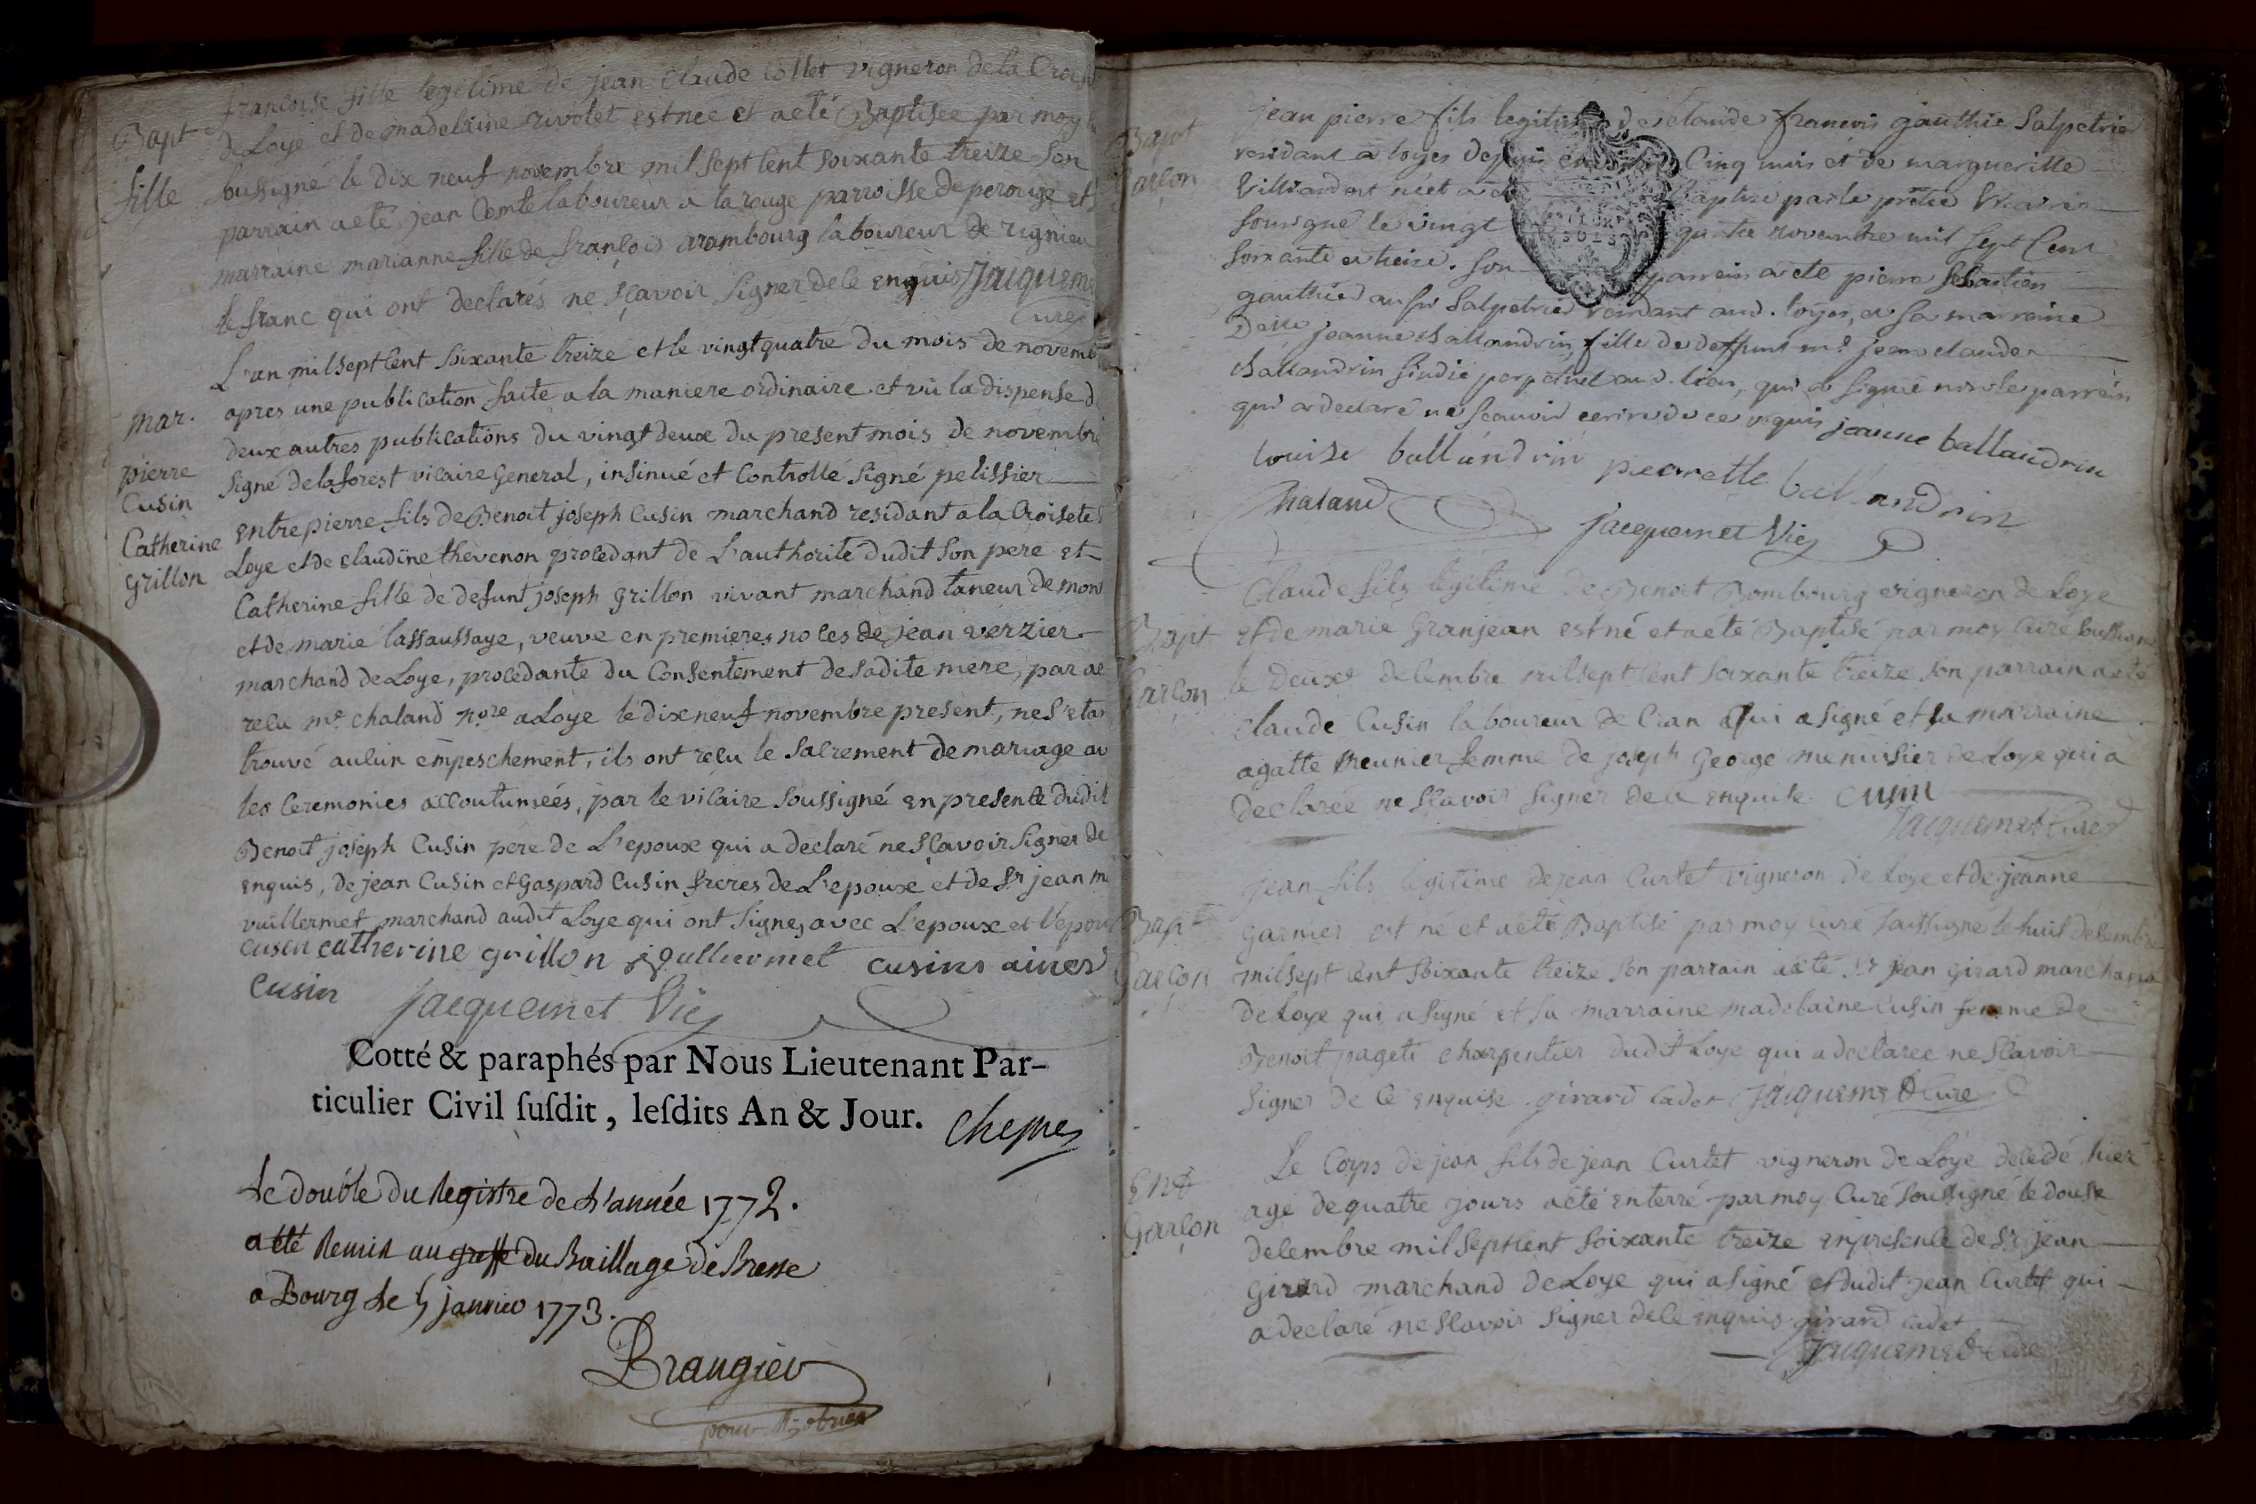 Bapt
fille
francoise fille legitime de jean claude collet vigneron de la
de Loye et de madelaine rivolet est nee et a eté Baptisee par moy
sussigné le dix neuf novembre mil sept cent soixante treize son
parrain a eté jean Comte laboureur a la rouge parroisse de perouge et
marraine marianne fille de françois arambourg laboureur de rignieu
le franc qui ont declarés ne sçavoir signer de ce enquis Jacquemet
Curé
mar.
pierre
Cusin
Catherine
grillon
L'an mil sept cent soixante treize et le vingt quatre du mois de novemb
apres une publication faite a la maniere ordinaire et vü la dispense d
deux autres publications du vingt deux du present mois de novembre
signé delaforest vicaire General, insinué et Controllé signé pelissier
entre pierre fils de Benoit joseph Cusin marchand residant a la Croisete
Loye et de claudine thevenon procedant de L'authorité dudit son pere et
Catherine fille de defunt joseph grillon vivant marchand taneur de mont
et de marie lassaussaye, veuve en premieres noces de jean verzier
marchand de Loye, procedante du Consentement de sadite mere, par ac
recu me chaland nore a Loye le dix neuf novembre present, ne s'etan
trouvé aucun empeschement, ils ont recu le sacrement de mariage av
les ceremonies accoutumées, par le vicaire soussigné en presence dudit
Benoit joseph Cusin pere de L'epoux qui a declaré ne sçavoir signer de
enquis, de jean Cusin et Gaspard Cusin freres de L'epoux et de Sr jean m
vuillermet marchand audit Loye qui ont signes avec L'epoux et l'epou
cusin catherine grillon j gulliermet cusins ainés
Cusin jacquemet Vic
Cotté & paraphés par Nous Lieutenant Par-
ticulier Civil susdit, lesdits An & Jour.
Le double du Registre de L'année 1772.
a été Remis au greffe du Baillage de Bresse
a Bourg le 5 janvier 1773.
Brangier
Bapt
Garçon
jean pierre fils legitime de claude francois gauthie Salpetrier
residant a loyes depuis Cinq mois et de margueritte
Baptisé par le prêtre Vicaire
sousigné le vingt quatre novembre mil sept Cent
soixante et treize. son parrein a ete pierre Sebastien
gauthier aussi Salpetrier residant aud. loyes, et sa marreine
Delle jeanne ballandrin fille de deffunt mr jean claude
ballandrin sindic perpetuel aud. lieu, qui a signé non le parrein
qui a declaré ne scauoir ecrire de ce enquis jeanne ballandrin
louise ballandrin pierrette ballandrin
Chaland jacquemet Vic
Bapt
Garçon
Claude fils legitime de Benoit Bombourg vigneron de Loye
et de marie Granjean est né et a eté Baptisé par moy Curé soussigné
le deuxe decembre mil sept cent soixante treize son parrain a eté
claude Cusin laboureur de Cran qui a signé et sa marraine
agatte Meunier femme de joseph George menuisier de Loye qui a
declarée ne sçavoir signer de ce enquise Cusin
Jacquemet Curé
Bapt
Garçon
jean fils legitime de jean Curtet vigneron de Loye et de jeanne
garnier est né et a eté Baptisé par moy Curé soussigné le huit decembre
mil sept cent soixante treize son parrain a eté Sr jean girard marchand
de Loye qui a signé et sa marraine madelaine Cusin femme de
Benoit pageti charpentier dudit Loye qui a declarée ne sçavoir
signer de ce enquise girard cadet Jacquemet Curé
Ent
Garçon
Le Corps de jean fils de jean Curtet vigneron de Loye decedé hier
agé de quatre jours a eté enterré par moy Curé soussigné le douse
decembre mil sept cent soixante treize en presence de Sr jean
girard marchand de Loye qui a signé et dudit jean Curtet qui
a declaré ne sçavoir signer de ce enquis girard cadet
Jacquemet Curé